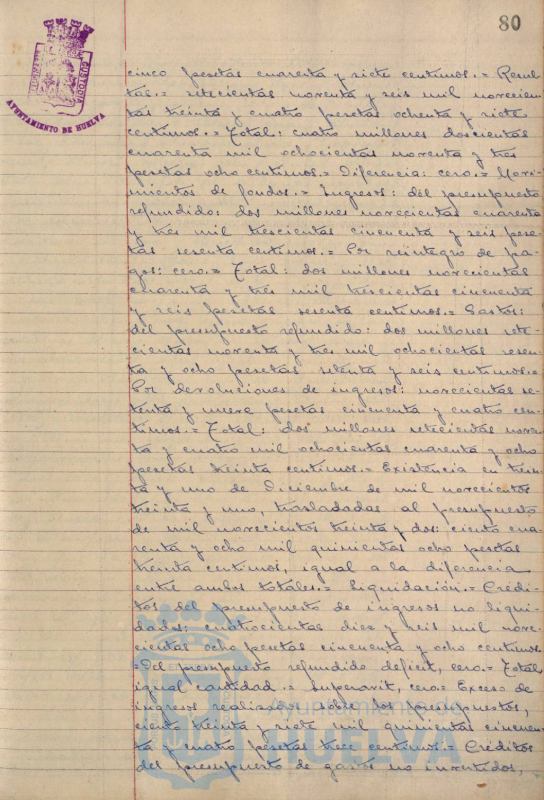 80
CUSTODIA
AYUNTAMIENTO DE HUELVA
cinco pesetas cuarenta y siete centimos.= Resul-
tas.= setecientas noventa y seis mil novecien-
tas treinta y cuatro pesetas ochenta y siete
centimos.= Total: cuatro millones doscientas
cuarenta mil ochocientas noventa y tres
pesetas ocho centimos.= Diferencia: cero.= Movi-
mientos de fondos.= Ingresos: del presupuesto
refundido: dos millones novecientas cuarenta
y tres mil trescientas cincuenta y seis pese-
tas sesenta centimos.= Por reintegro de pa-
gos: cero.= Total: dos millones novecientas
cuarenta y tres mil trescientas cincuenta
y seis pesetas sesenta centimos.= Gastos:
del presupuesto refundido: dos millones sete-
cientas noventa y tres mil ochocientas sesen-
ta y ocho pesetas setenta y seis centimos.=
Por devoluciones de ingresos: novecientas se-
tenta y nueve pesetas cincuenta y cuatro cen-
timos.= Total: dos millones setecientas noven-
ta y cuatro mil ochocientas cuarenta y ocho
pesetas treinta centimos.= Existencia en trein-
ta y uno de Diciembre de mil novecientos
treinta y uno, trasladadas al presupuesto
de mil novecientos treinta y dos: ciento cua-
renta y ocho mil quinientas ocho pesetas
treinta centimos, igual a la diferencia
entre ambos totales.= Liquidación.= Crédi-
tos del presupuesto de ingresos no liqui-
dados: cuatrocientas diez y seis mil nove-
cientas ocho pesetas cincuenta y ocho centimos
=Del presupuesto refundido deficit, cero.= Total,
igual cantidad.= Superavit, cero.= Exceso de
ingresos realizados sobre los presupuestos,
ciento treinta y siete mil quinientas cincuen-
ta y cuatro pesetas trece centimos.= Créditos
del presupuesto de gastos no invertidos,
Ayuntamiento de
HUELVA